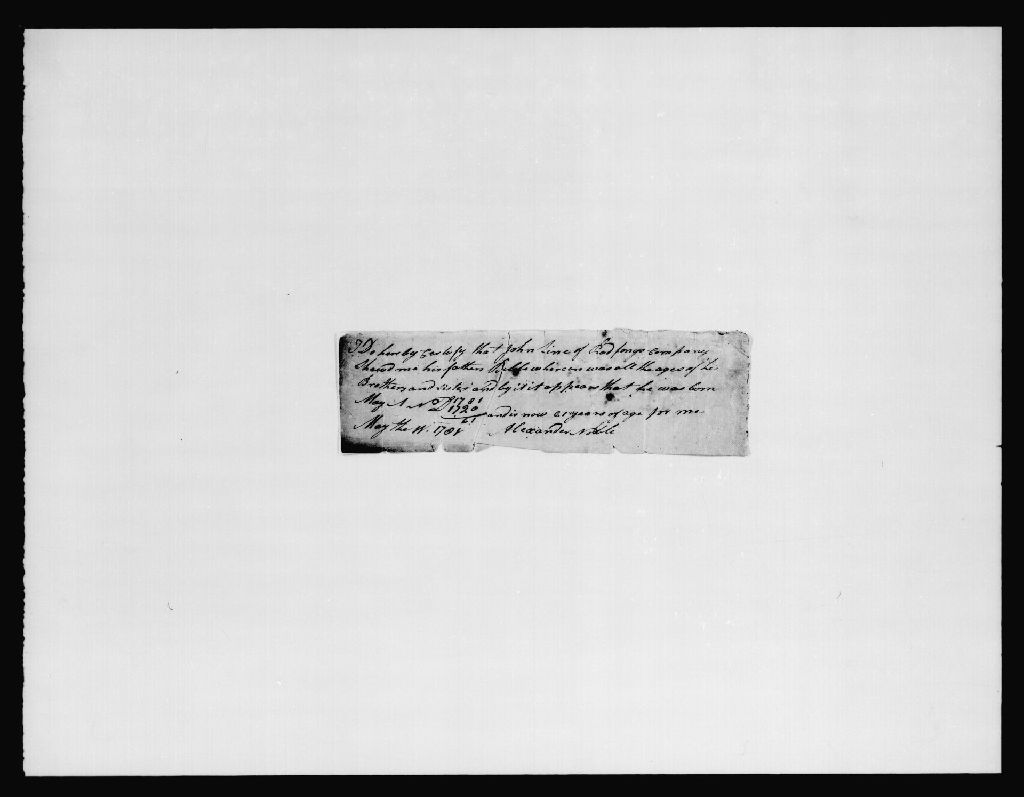 I Do hereby Certefy that John Line of Company
Shewed me his fathers Bible wherein was all the ages of his
Brothers and sister and by it it appears that he was born
May 1 1781
1720
61
and is now 61 years of age for me
May the 1781 Alexander Noble